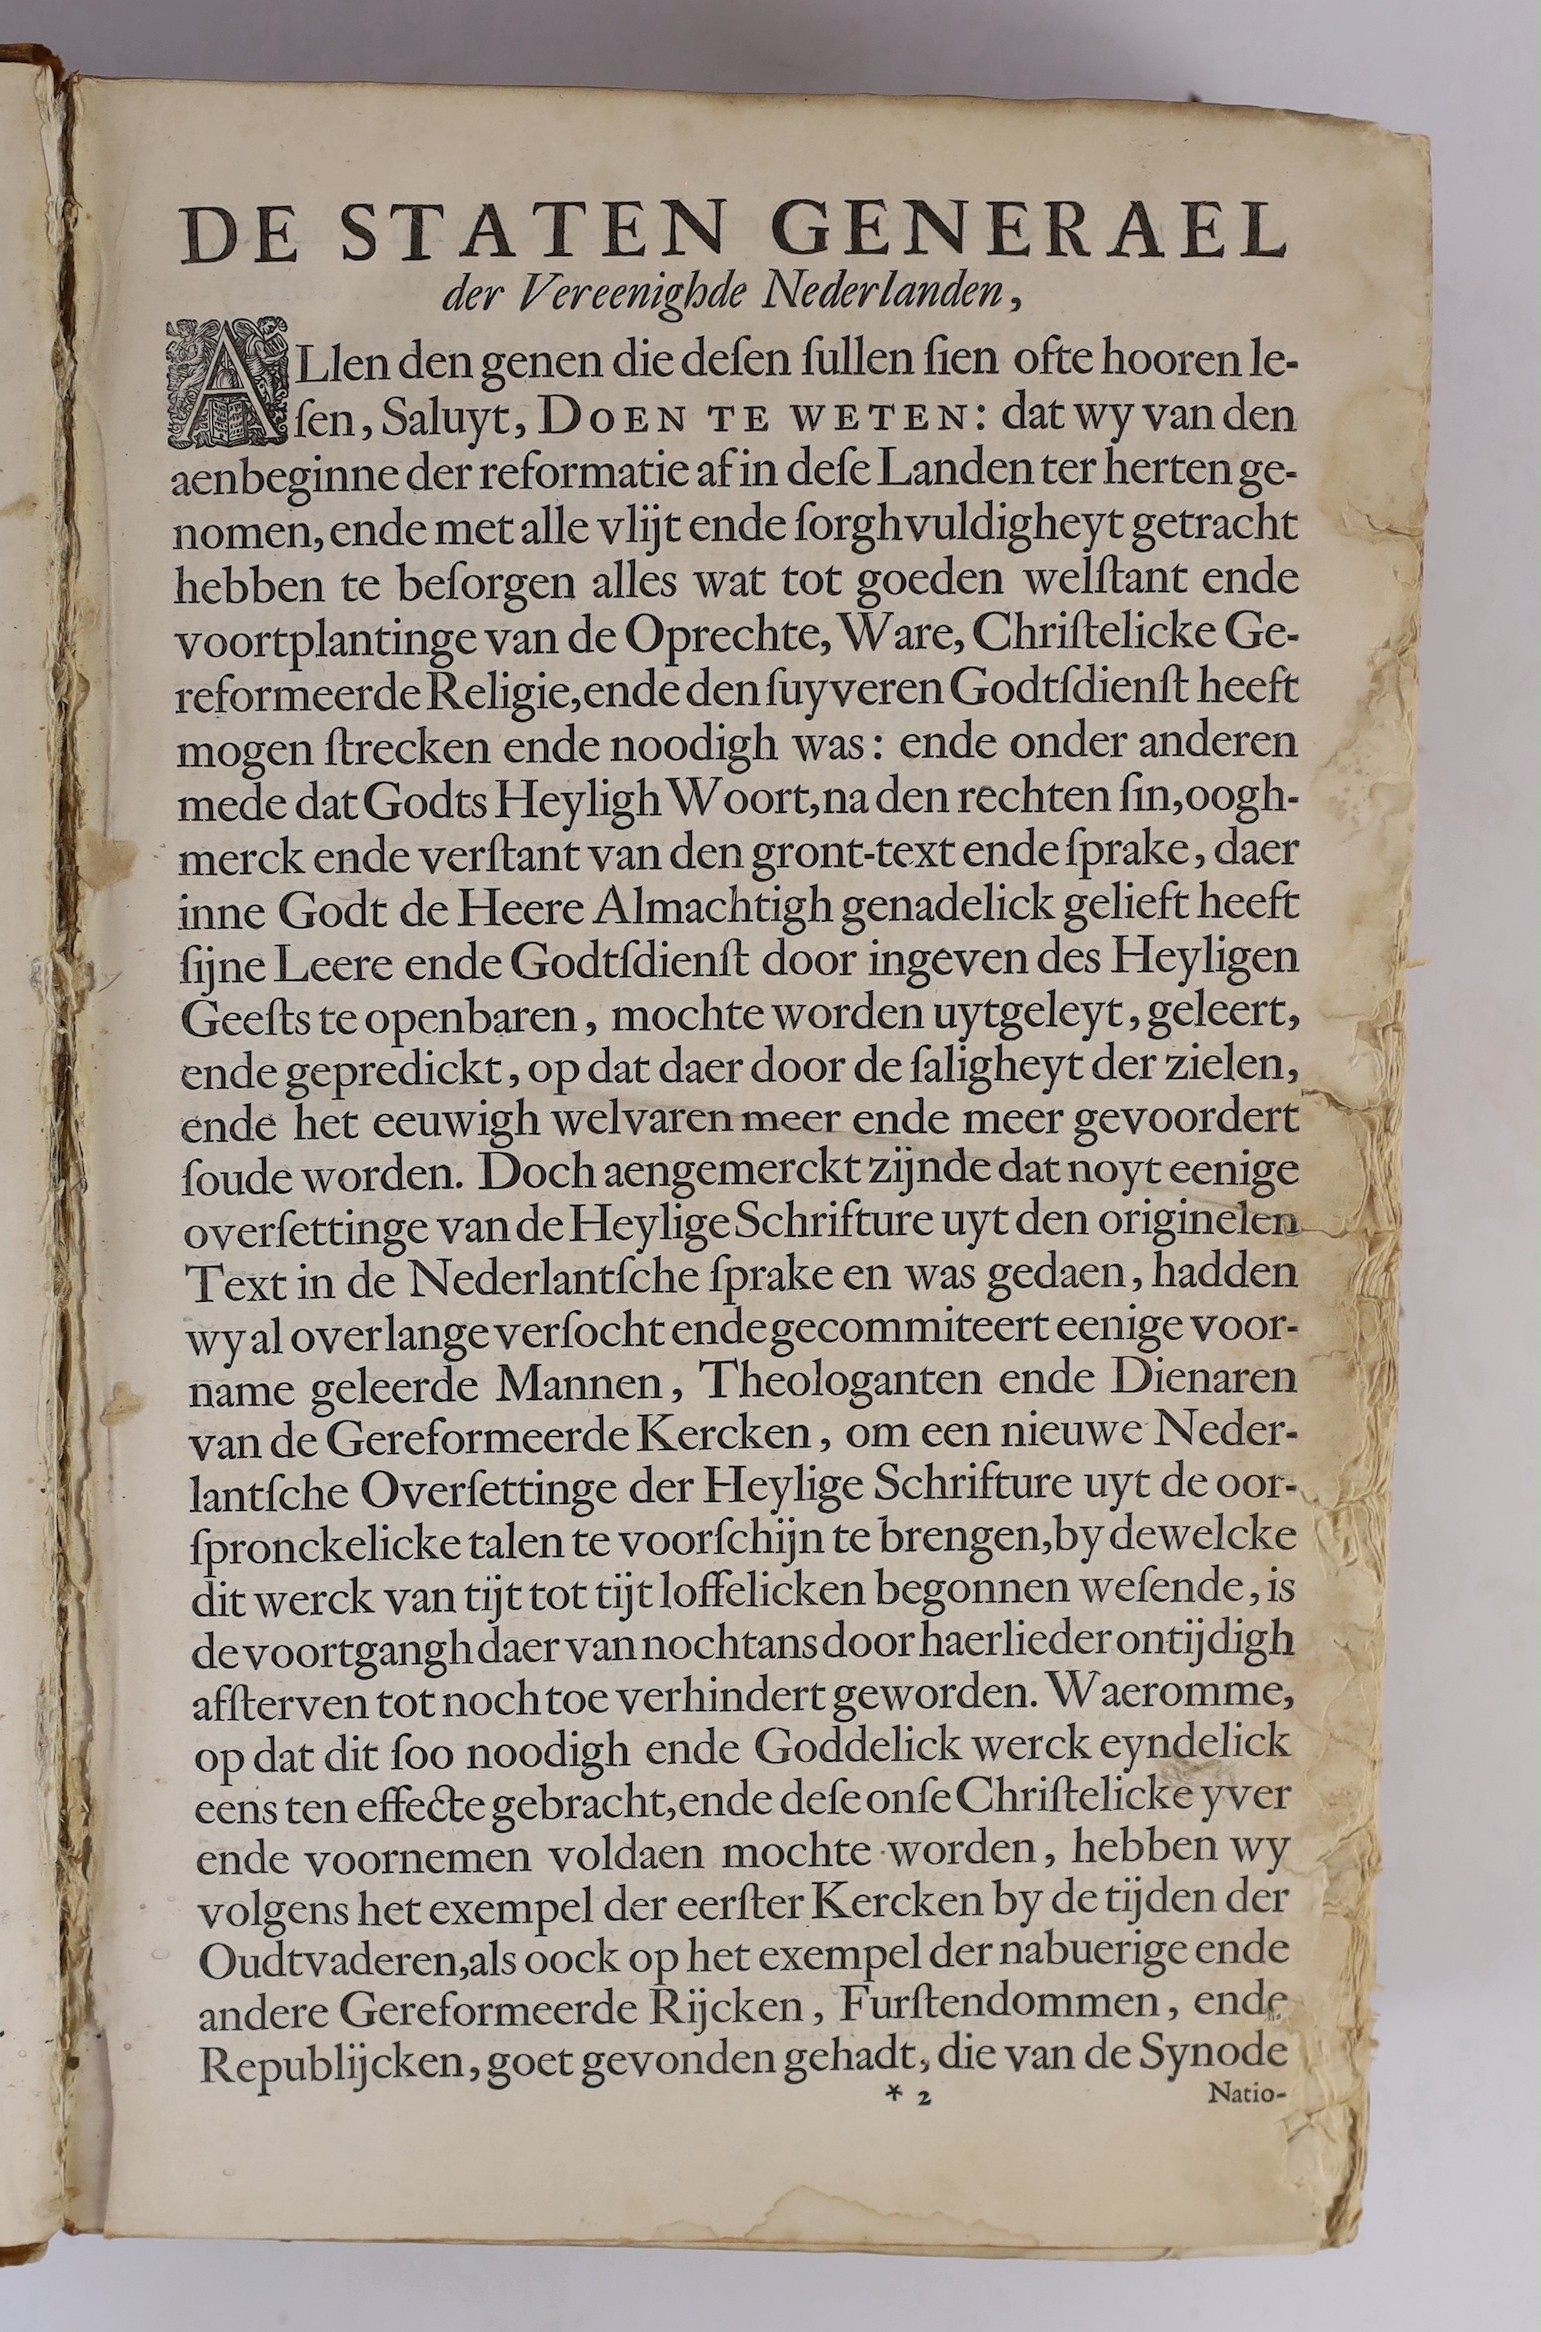 DE STATEN GENERAEL
der Vereenighde Nederlanden,
ALlen den genen die deſen ſullen ſien ofte hooren le-
ſen, Saluyt, DOEN TE WETEN: dat wy van den
aenbeginne der reformatie af in deſe Landen ter herten ge-
nomen, ende met alle vlijt ende ſorghvuldigheyt getracht
hebben te beſorgen alles wat tot goeden welſtant ende
voortplantinge van de Oprechte, Ware, Chriſtelicke Ge-
reformeerde Religie, ende den ſuyveren Godtſdienſt heeft
mogen ſtrecken ende noodigh was: ende onder anderen
mede dat Godts Heyligh Woort, na den rechten ſin, oogh-
merck ende verſtant van den gront-text ende ſprake, daer
inne Godt de Heere Almachtigh genadelick gelieft heeft
ſijne Leere ende Godtſdienſt door ingeven des Heyligen
Geeſts te openbaren, mochte worden uytgeleyt, geleert,
ende gepredickt, op dat daer door de ſaligheyt der zielen,
ende het eeuwigh welvaren meer ende meer gevoordert
ſoude worden. Doch aengemerckt zijnde dat noyt eenige
overſettinge van de Heylige Schrifture uyt den originelen
Text in de Nederlantſche ſprake en was gedaen, hadden
wy al over lange verſocht ende gecommiteert eenige voor-
name geleerde Mannen, Theologanten ende Dienaren
van de Gereformeerde Kercken, om een nieuwe Neder-
lantſche Overſettinge der Heylige Schrifture uyt de oor-
ſpronckelicke talen te voorſchijn te brengen, by dewelcke
dit werck van tijt tot tijt loffelicken begonnen weſende, is
de voortgangh daer van nochtans door haerlieder ontijdigh
afſterven tot noch toe verhindert geworden. Waeromme,
op dat dit ſoo noodigh ende Goddelick werck eyndelick
eens ten effecte gebracht, ende deſe onſe Chriſtelicke yver
ende voornemen voldaen mochte worden, hebben wy
volgens het exempel der eerſter Kercken by de tijden der
Oudtvaderen, als oock op het exempel der nabuerige ende
andere Gereformeerde Rijcken, Furſtendommen, ende
Republijcken, goet gevonden gehadt, die van de Synode
* 2 Natio-